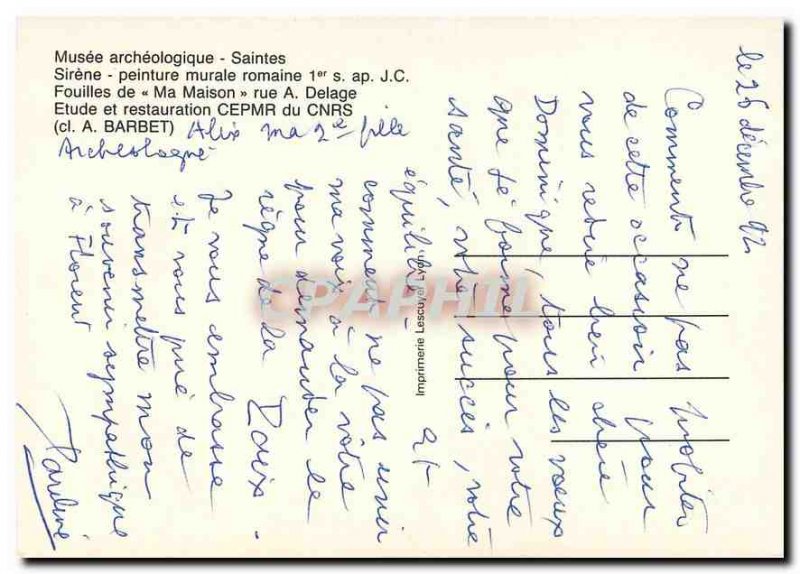 Musée archéologique - Saintes
Sirène - peinture murale romaine 1er s. ap. J.C.
Fouilles de « Ma Maison » rue A. Delage
Etude et restauration CEPMR du CNRS
(cl. A. BARBET) Alix ma 2e fille
Archéologue
le 26 décembre 92
Comment ne pas profiter
de cette occasion pour
vous redire bien chère
Dominique, tous les voeux
que je forme pour votre
santé, votre succès, votre
équilibre - et
comment ne pas unir
ma voix à la vôtre
pour demander le
règne de la Paix.
Je vous embrasse
et vous prie de
transmettre mon
souvenir sympathique
à Florent
Pauline
Imprimerie Lescuyer Lyon
CPAPHIL